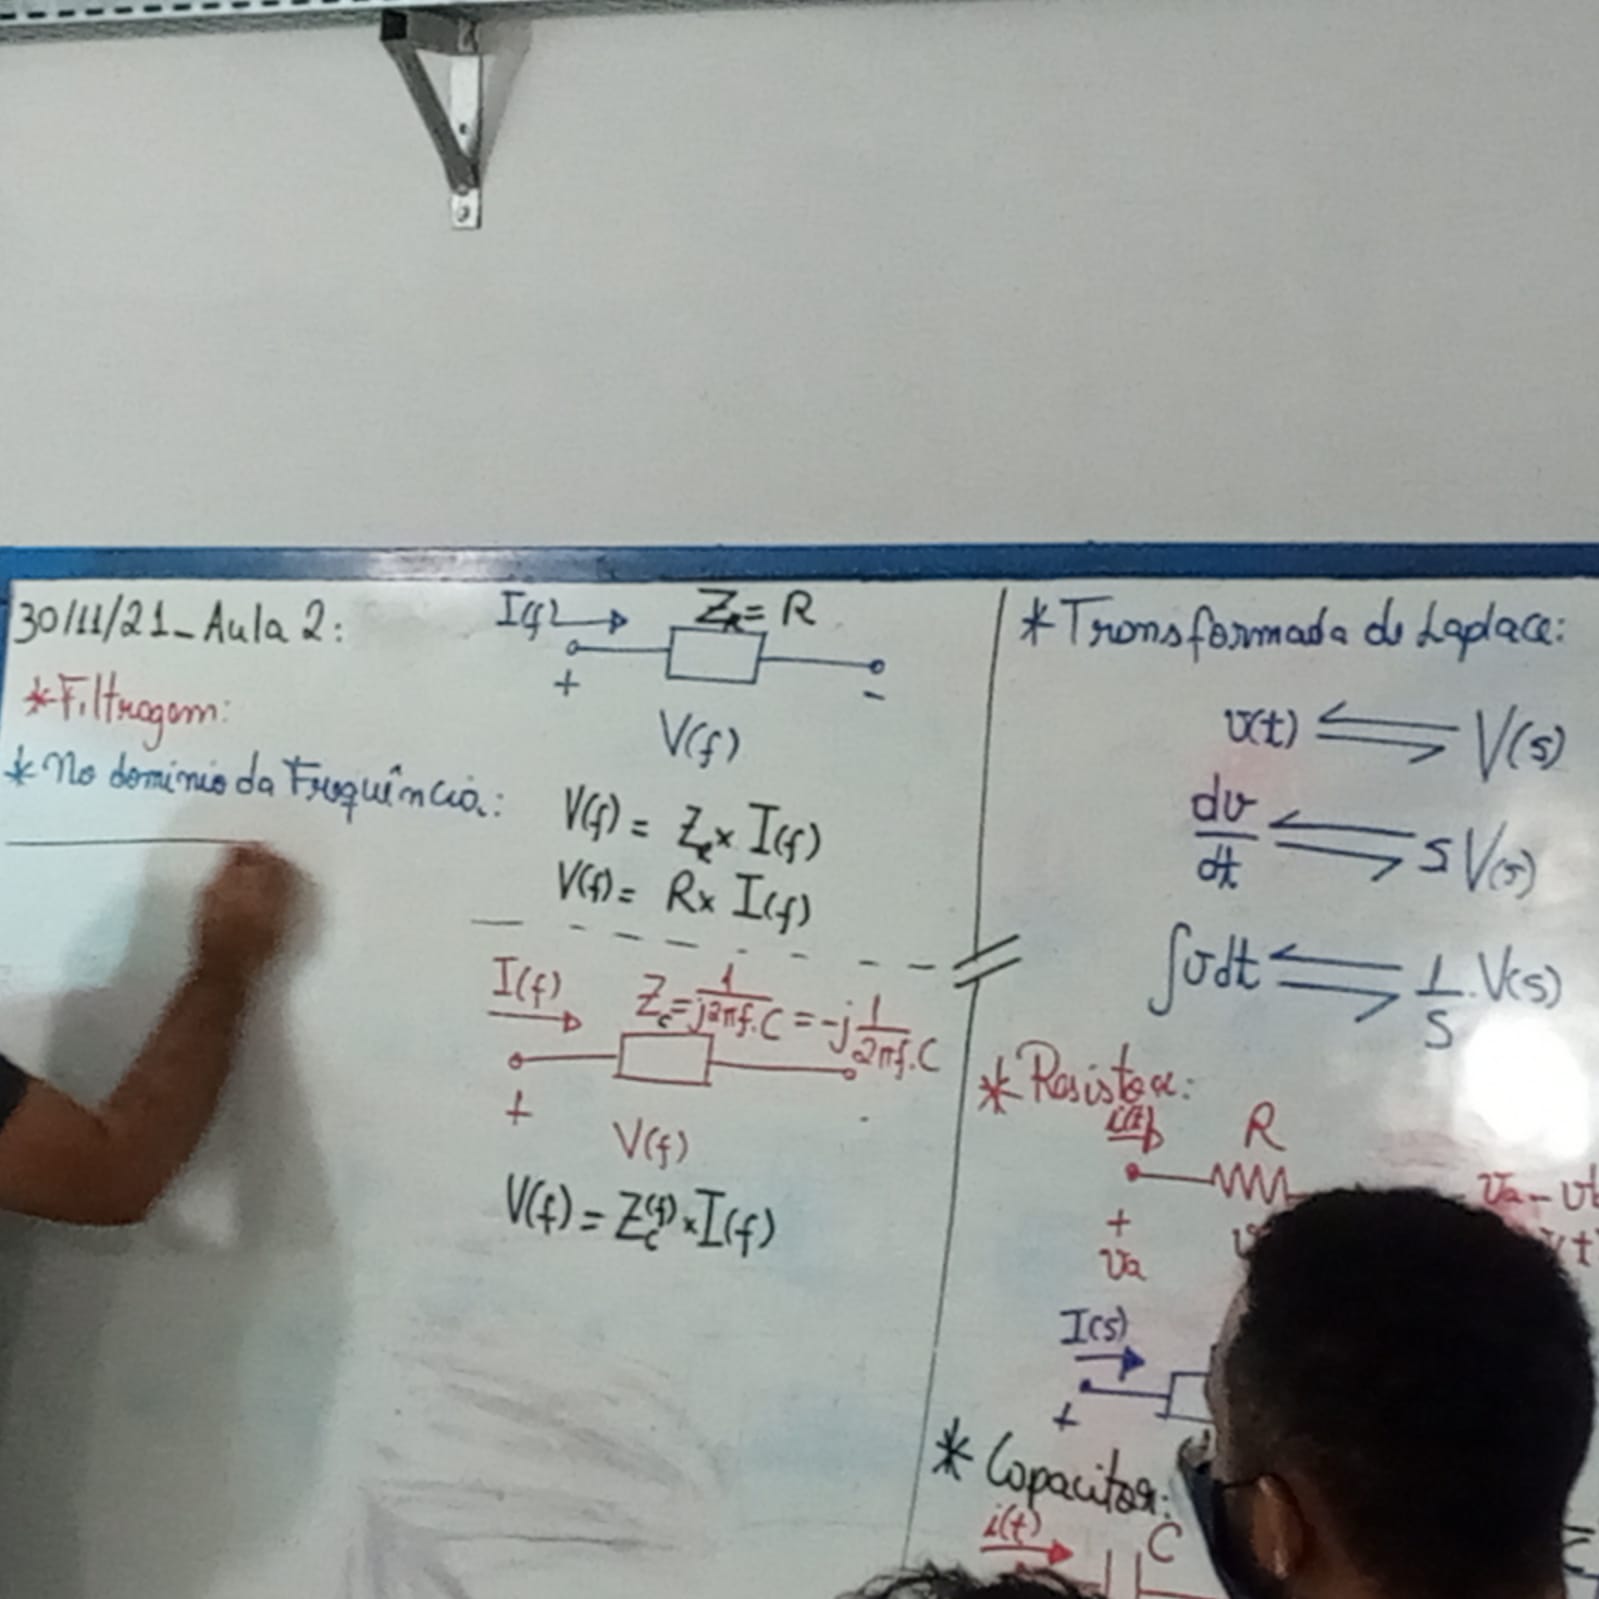 30/11/21_ Aula 2:
*Filtragem:
* No domínio da Frequência:
I(f)
Z_R = R
+ -
V(f)
V(f) = Z_R × I(f)
V(f) = R × I(f)
I(f)
Z_c = 1/(j2πf.C) = -j 1/(2πf.C)
+ -
V(f)
V(f) = Z_c(f) × I(f)
* Transformada de Laplace:
v(t) ⇌ V(s)
dv/dt ⇌ s V(s)
∫v dt ⇌ 1/s . V(s)
* Resistor:
i(t)
R
+
va
va - vb
I(s)
+
* Capacitor:
i(t)
C